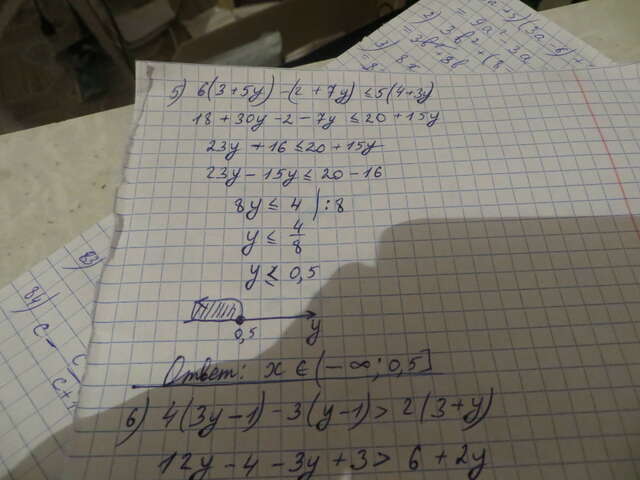 5) 6(3+5y) - (2+7y) ≤ 5(4+3y)
18 + 30y - 2 - 7y ≤ 20 + 15y
23y + 16 ≤ 20 + 15y
23y - 15y ≤ 20 - 16
8y ≤ 4 | : 8
y ≤ 4/8
y ≤ 0,5
0,5 y
Ответ: x ∈ (-∞; 0,5]
6) 4(3y-1) - 3(y-1) > 2(3+y)
12y - 4 - 3y + 3 > 6 + 2y
83)
84)